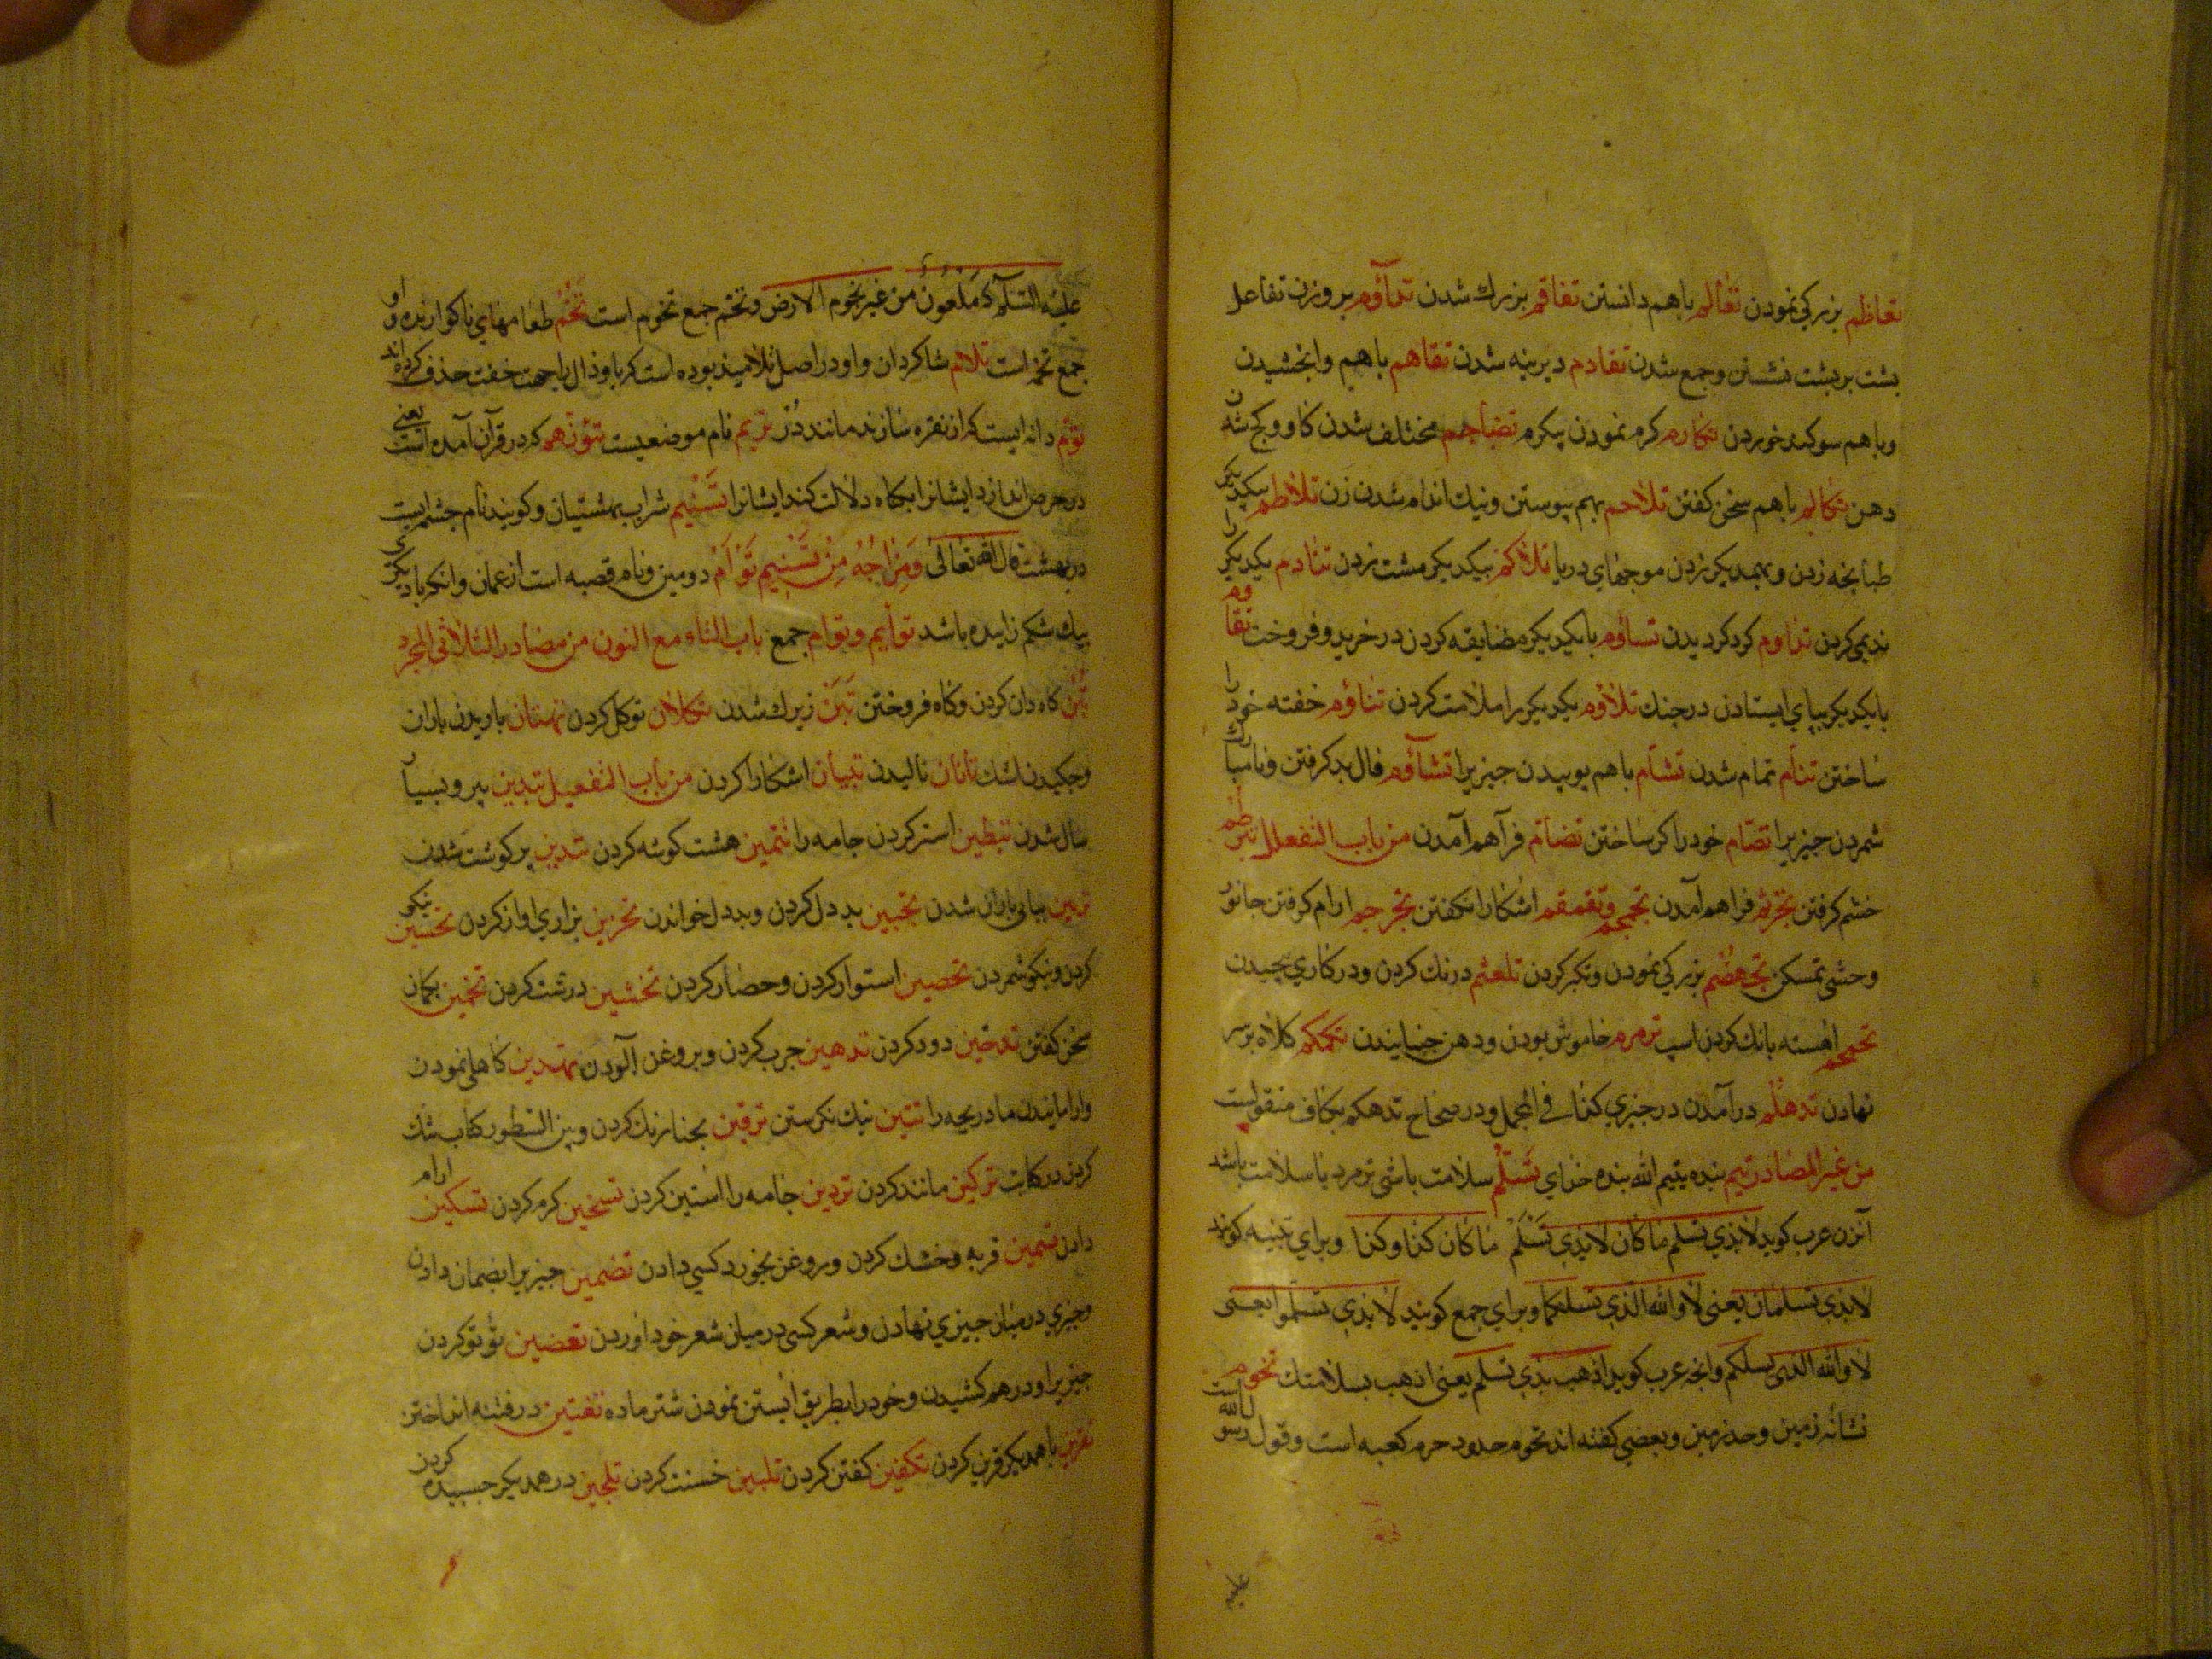 تعاظم بزرکي نمودن تعالم باهم دانستن تفاقم بزرك شدن تدآؤم بر وزن تفاعل
پشت بر پشت نشستن و جمع شدن تقادم ديرينه شدن تقاهم باهم وابخشيدن
و باهم سوکند خوردن تکارم کرم نمودن پيکرم تضاجم مختلف شدن کا و و کج شدن
دهن تکالم باهم سخن کفتن تلاحم بهم پيوستن و نيك اندام شدن زن تلاطم يکديکر را
طبانچه زدن و بهمديکر زدن موجهاي دريا تلاکم بيکديکر مشت زدن تنادم يکديکر
نديمي کردن تداوم کرد کرديدن تساؤم با يکديکر مضايقه کردن در خريد و فروخت تقاوم
با يکديکر بپاي ايستادن در جنك تلاؤم يکديکر را ملامت کردن تناؤم خفته خود را
ساختن تتام تمام شدن تشام باهم بوييدن چيزيرا تشآؤم فال بد کرفتن و نامبارك
شمردن چيزيرا تصام خود را کر ساختن تضام فرآهم آمدن من باب التفعلل تبرطم
خشم کرفتن تجرثم فراهم آمدن تجمجم و تغمغم اشکارا نکفتن تجرجم ارام کرفتن جانور
وحشي تمسکن تجعضم بزرکي نمودن و تکبر کردن تلعثم درنك کردن و در کاري پيچيدن
تحمحم اهسته بانك کردن اسپ ترمرم خاموش بودن و دهن جنبانيدن تکمکم کلاه بر سر
نهادن تدهلم درآمدن در چيزي کذا في المجمل و در صحاح تدهکم بکاف منقولست
من غير المصادر تيم بنده يتيم الله بنده خداي تسلم سلامت باشي تو مرد با سلامت باشد
آنزن عرب کويد لا بذي تسلم ما کان لا بذي تسلم ما کان کذا و کذا و براي تثنيه کويند
لا بذي تسلمان يعني لا والله الذي يسلمکما و براي جمع کويند لا بذي تسلموا يعني
لا والله الذي يسلمکم و انچه عرب کويد اذهب بذي تسلم يعني اذهب بسلامتك تخوم
نشانۀ زمين و حد زمين و بعضي کفته اند تخوم حدود حرم کعبه است و قول رسول الله است
عليه السلام که ملعون من غير تخوم الارض و تختم جمع تخوم است تخم طعامهاي ناکوارنده و او
جمع تخمه است تلام شاکردان و او در اصل تلاميذ بوده است که يا و ذال را جهت خفت حذف کرده اند
توم دانه ايست که از نقره سازند مانند در تريم نام موضعيست تؤزهم که در قرآن آمده است يعني
در حرص اندازد ايشانرا بکناه دلالت کند ايشانرا تسنيم شراب بهشتيان و کويند نام چشمه ايست
در بهشت قال الله تعالى ومزاجه من تسنيم توأم دومين و نام قصبه است از عمان و انکه با ديکري
بيك شکم زاييده باشد توأيم و توام جمع باب التاء مع النون من مصادر الثلاثي المجرد
تبن کاه دان کردن و کاه فروختن تبن زيرك شدن تکلان توکل کردن تهتان باريدن باران
و چکيدن اشك تانان ناليدن تبيان اشکارا کردن من باب التفعيل تبدين پير و بسيار
سال شدن تبطين استر کردن جامه را تثمين هشت کوشه کردن تبدين پر کوشت شدن
تجبين بد دل کردن و بد دل خواندن تحزين بزاري اواز کردن تحسين نيکو
کردن و نيکو شمردن تحصين استوار کردن و حصار کردن تخشين درشت کردن تخمين بکمان
سخن کفتن تدخين دود کردن تدهين چرب کردن و بروغن آلودن تهدين کاهلي نمودن
و ارامانيدن مادر بچه را تتبين نيك نکرستن ترقين بحنا رنك کردن و بين السطور کتاب تنك
کردن در کتابت ترکين مانند کردن تردين جامه را استين کردن تسخين کرم کردن تسکين ارام
دادن تسمين فربه و خشك کردن و روغن بخورد کسي دادن تضمين چيزيرا بضمان دادن
و چيزي در ميان چيزي نهادن و شعر کسي در ميان شعر خود اوردن تغضين تو تو کردن
چيزيرا و درهم کشيدن و خود را بطريق ابستن نمودن شتر ماده تفتين در فتنه انداختن
تقرين باهمديکر قرين کردن تکفين کفن کردن تلبين خشت کردن تلجين درهمديکر چسپيده کردن